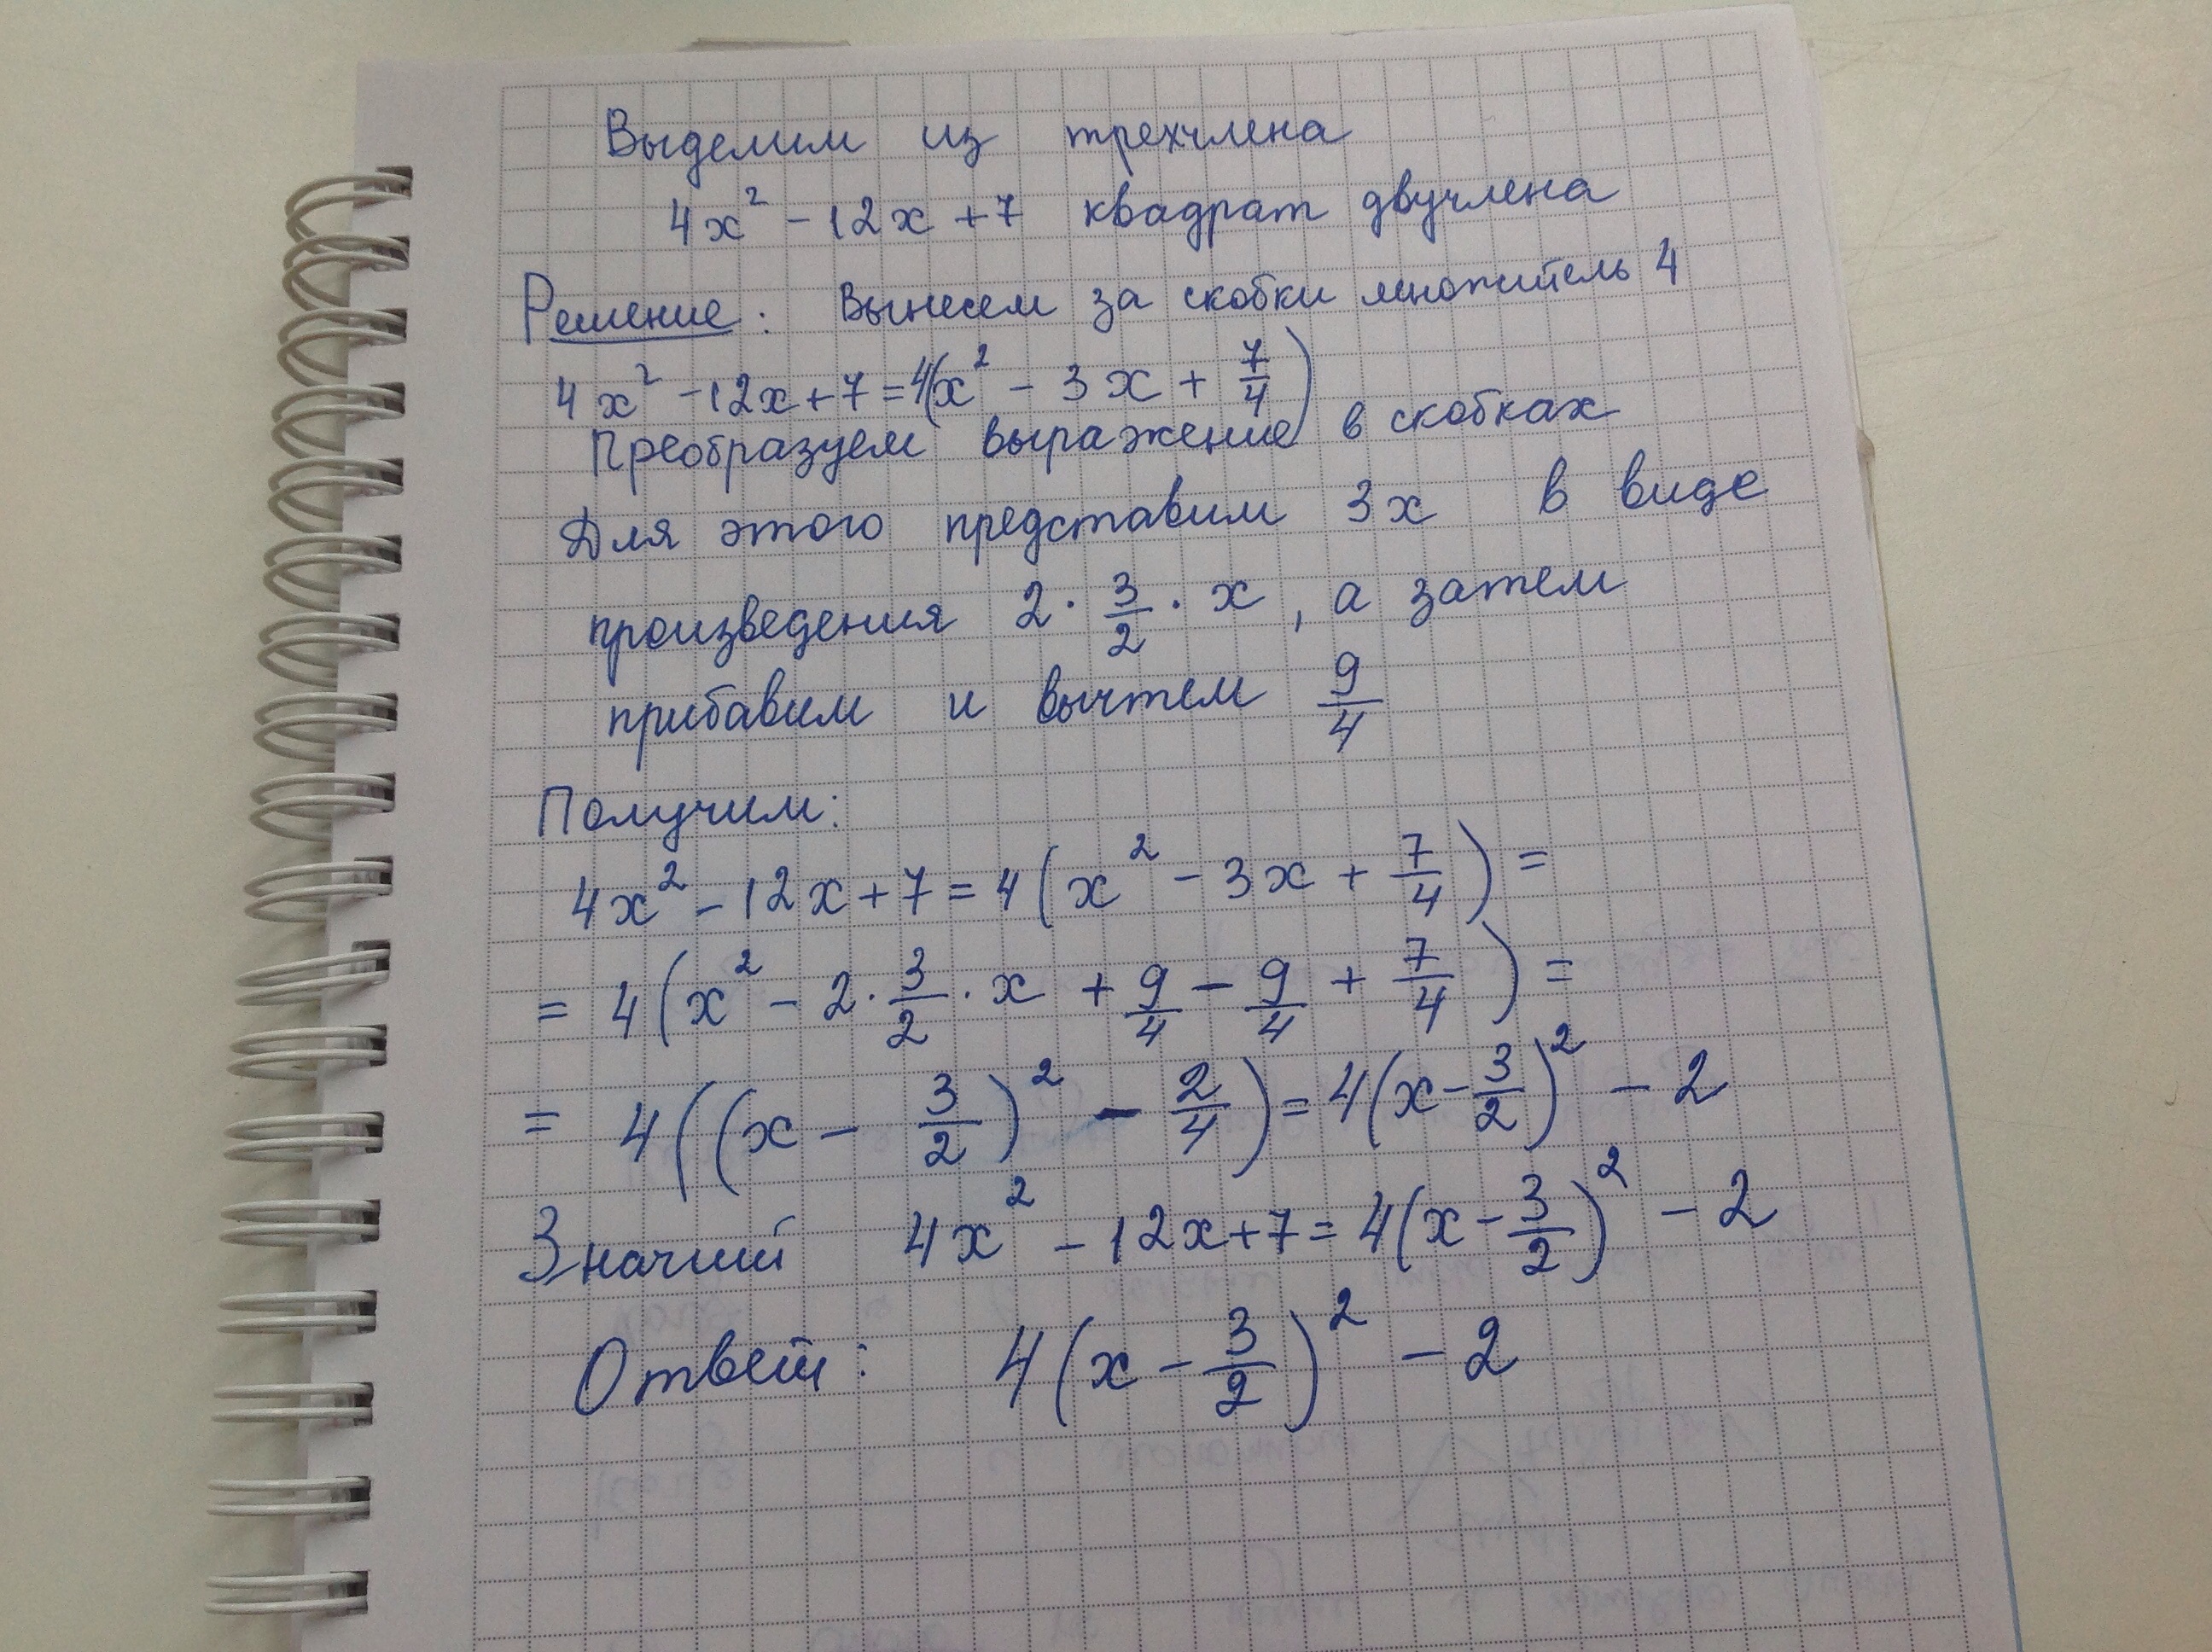 Выделим из трехчлена
4x² - 12x + 7 квадрат двучлена
Решение: Вынесем за скобки множитель 4
4x² - 12x + 7 = 4(x² - 3x + 7/4)
Преобразуем выражение в скобках
Для этого представим 3x в виде
произведения 2 · 3/2 · x, а затем
прибавим и вычтем 9/4
Получим:
4x² - 12x + 7 = 4(x² - 3x + 7/4) =
= 4(x² - 2 · 3/2 · x + 9/4 - 9/4 + 7/4) =
= 4((x - 3/2)² - 2/4) = 4(x - 3/2)² - 2
Значит 4x² - 12x + 7 = 4(x - 3/2)² - 2
Ответ: 4(x - 3/2)² - 2